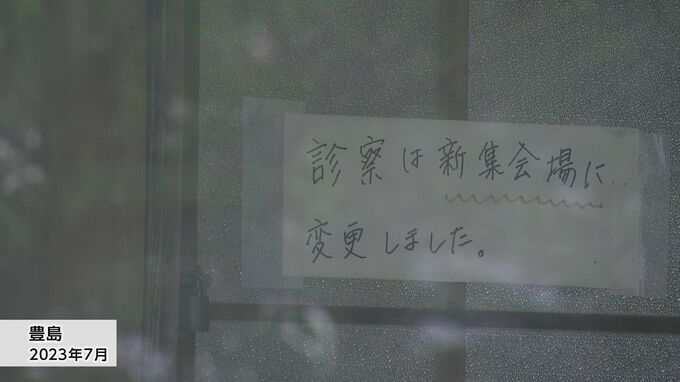 診察は新集会場に
変更しました。
豊島
2023年7月